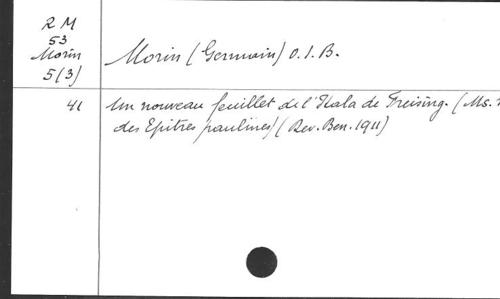 R M
53
Morin
5(3)
Morin (Germain) O.S.B.
41
Un nouveau feuillet de l'Itala de Freising. (Ms.
des Epitres paulines) (Rev. Ben. 1911)